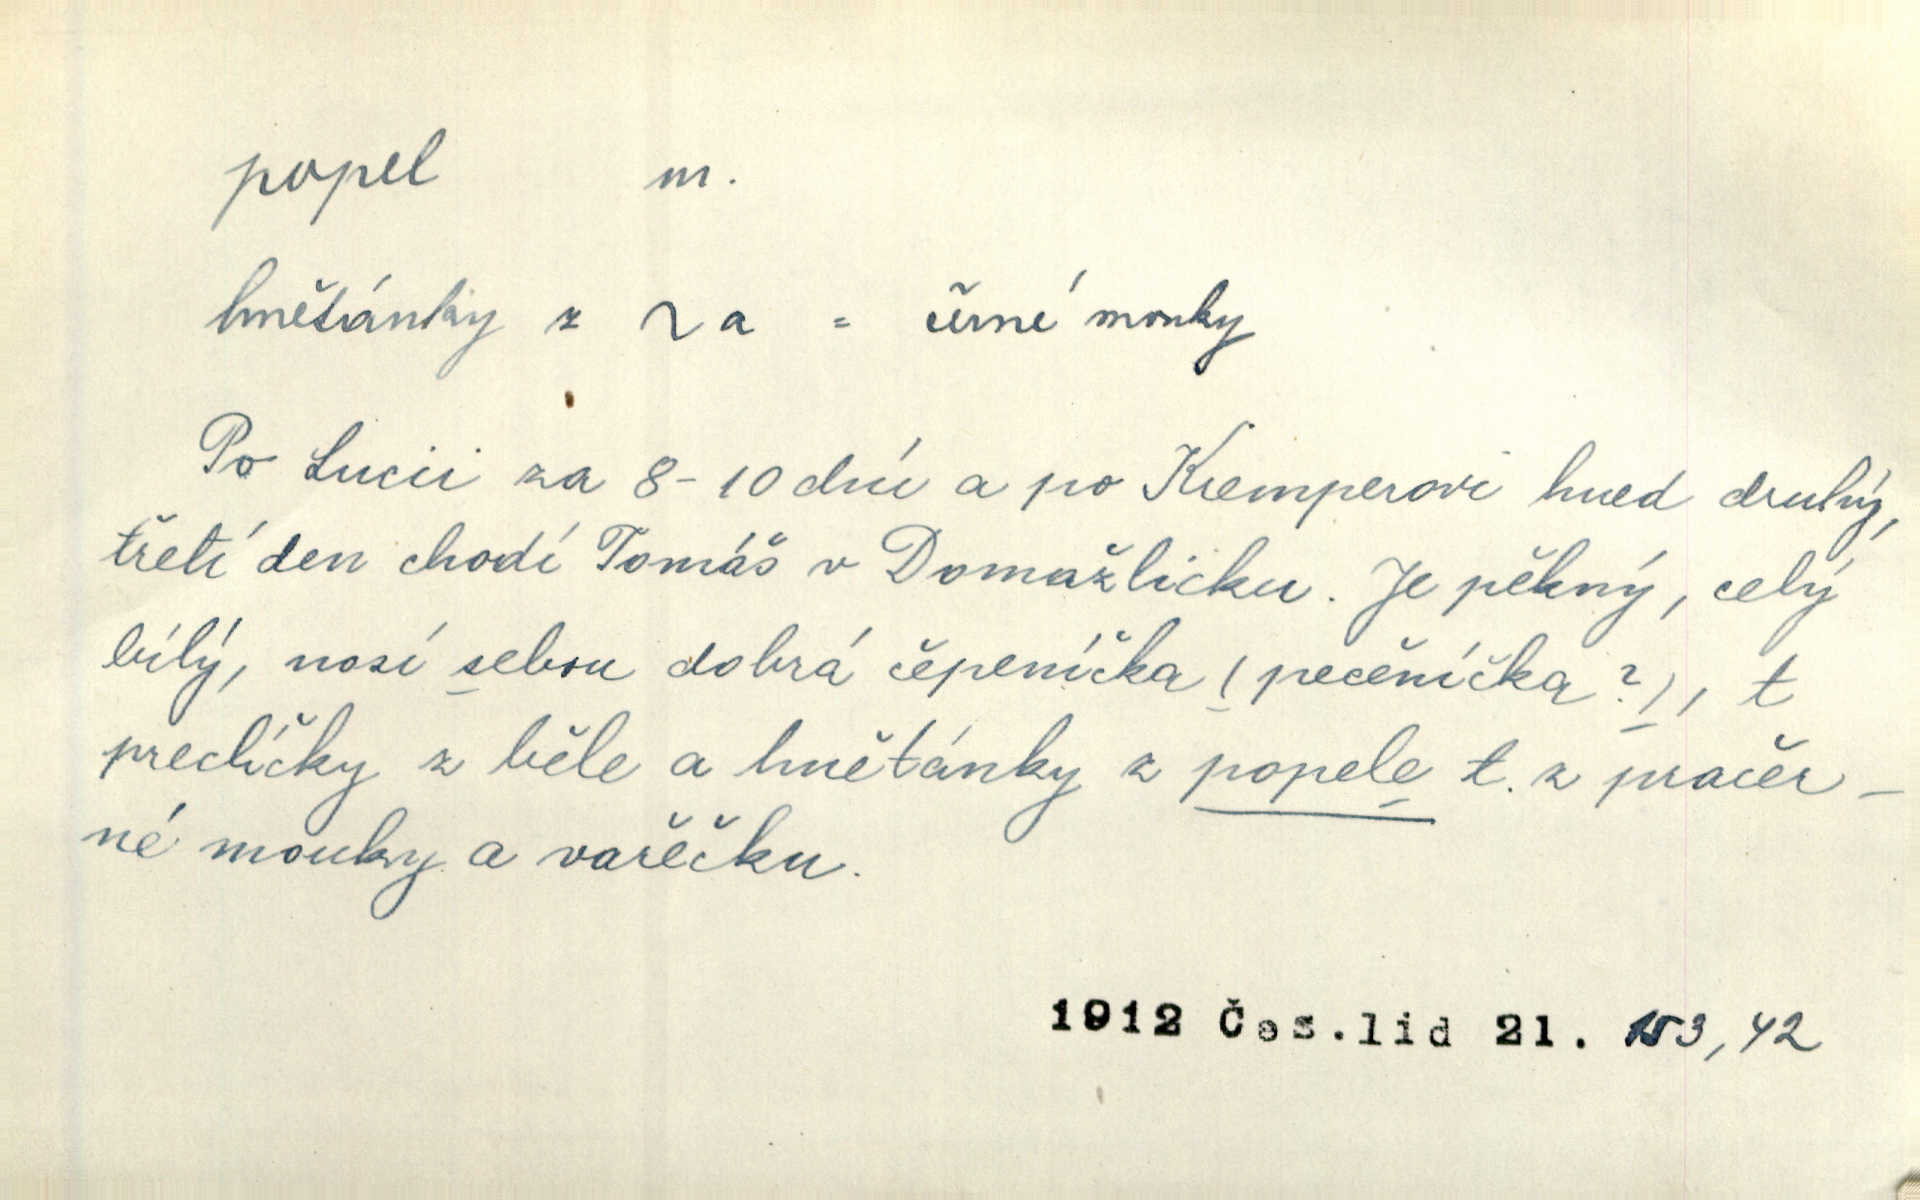 popel m.
hnětánky z ~ a = černé mouky
Po Lucii za 8-10 dní a po Kemperovi hned druhý,
třetí den chodí Tomáš v Domažlicku. Je pěkný, celý
bílý, nosí sebou dobrá čepeníčka (pečeníčka?), t
preclíčky z běle a hnětánky z popele t. z pračer-
né mouky a vařečku.
1912 Čes.lid 21. 153,42